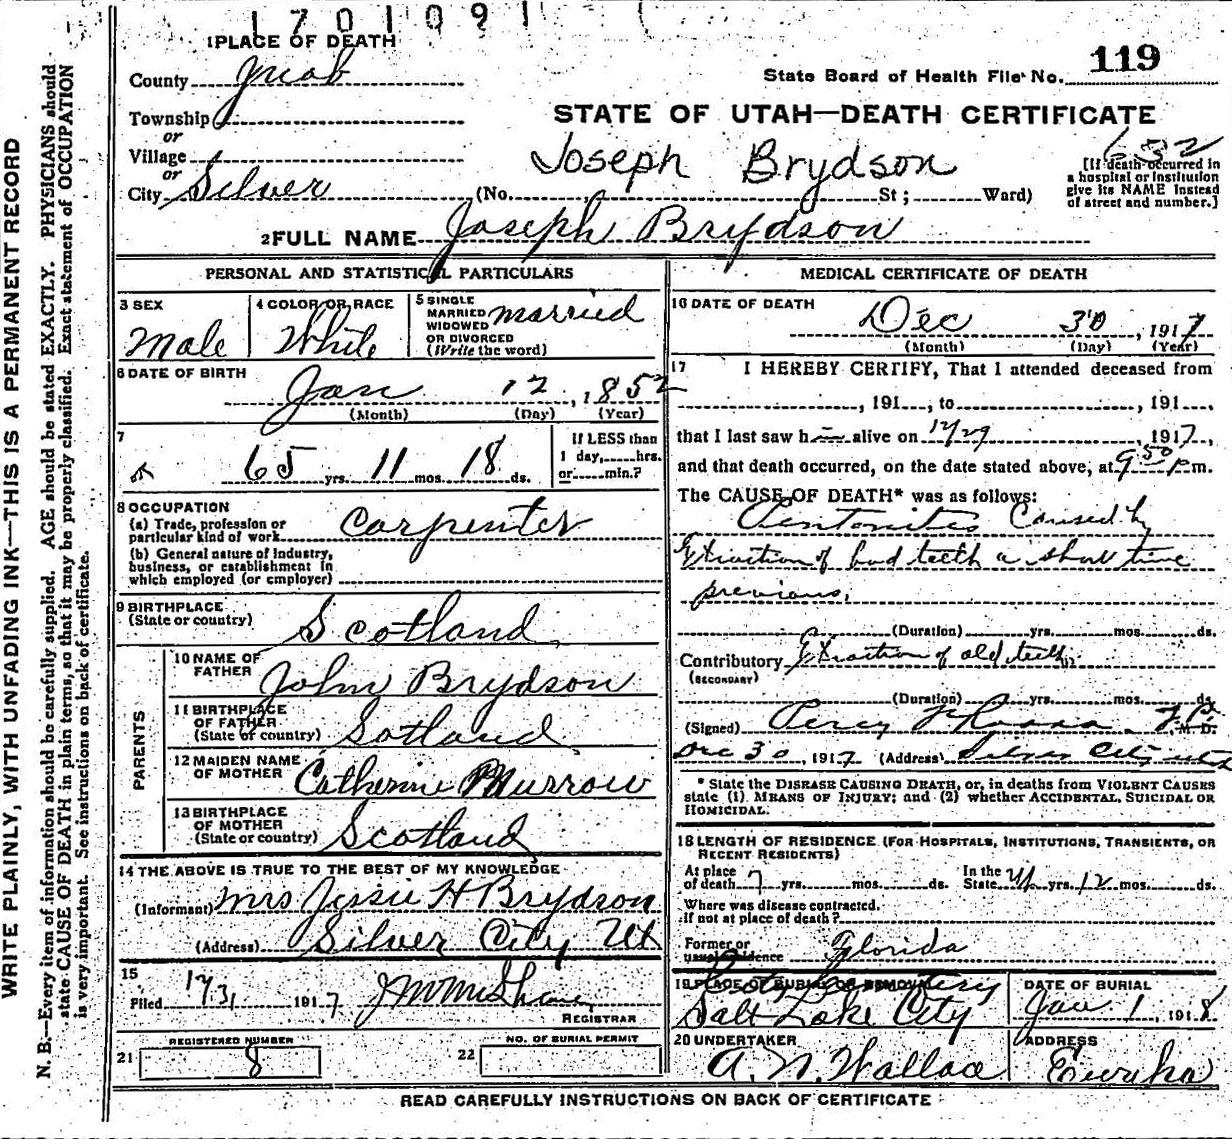 1701091
1 PLACE OF DEATH
County Juab
State Board of Health File No. 119
Township
or
Village
or
City Silver
STATE OF UTAH—DEATH CERTIFICATE
632
Joseph Brydson
(No. St; Ward)
[If death occurred in
a hospital or institution
give its NAME instead
of street and number.]
2 FULL NAME Joseph Brydson
PERSONAL AND STATISTICAL PARTICULARS
3 SEX
Male
4 COLOR OR RACE
White
5 SINGLE
MARRIED
WIDOWED
OR DIVORCED
(Write the word)
married
6 DATE OF BIRTH
Jan 12, 1852
(Month) (Day) (Year)
7
65 yrs. 11 mos. 18 ds.
If LESS than
1 day, hrs.
or min.?
8 OCCUPATION
(a) Trade, profession or
particular kind of work Carpenter
(b) General nature of industry,
business, or establishment in
which employed (or employer)
9 BIRTHPLACE
(State or country)
Scotland
PARENTS
10 NAME OF
FATHER
John Brydson
11 BIRTHPLACE
OF FATHER
(State or country)
Sotland
12 MAIDEN NAME
OF MOTHER
Catherine Murrow
13 BIRTHPLACE
OF MOTHER
(State or country)
Scotland
14 THE ABOVE IS TRUE TO THE BEST OF MY KNOWLEDGE
(Informant) Mrs Jessie H Brydson
(Address) Silver City Ut
15
Filed 12/31 1917
REGISTRAR
REGISTERED NUMBER
21 8
NO. OF BURIAL PERMIT
22
MEDICAL CERTIFICATE OF DEATH
16 DATE OF DEATH
Dec 30, 1917
(Month) (Day) (Year)
17 I HEREBY CERTIFY, That I attended deceased from
, 191 , to , 191 ,
that I last saw h alive on 12/29, 1917
and that death occurred, on the date stated above, at 9 50 P.m.
The CAUSE OF DEATH* was as follows:
Caused by
Extraction of bad teeth a short time
previous.
(Duration) yrs. mos. ds.
Contributory Extraction of old teeth
(SECONDARY)
(Duration) yrs. mos. ds.
(Signed) Percy M. D.
Dec 30, 1917 (Address) Silver City Utah
* State the DISEASE CAUSING DEATH, or, in deaths from VIOLENT CAUSES
state (1) MEANS OF INJURY; and (2) whether ACCIDENTAL, SUICIDAL OR
HOMICIDAL.
18 LENGTH OF RESIDENCE (FOR HOSPITALS, INSTITUTIONS, TRANSIENTS, OR
RECENT RESIDENTS)
At place
of death 7 yrs. mos. ds.
In the
State yrs. 12 mos. ds.
Where was disease contracted.
if not at place of death?
Former or
usual residence Florida
19 PLACE OF BURIAL OR REMOVAL
City Cemetery
Salt Lake City
DATE OF BURIAL
Jan 1, 1918
20 UNDERTAKER
A. N. Wallace
ADDRESS
Eureka
READ CAREFULLY INSTRUCTIONS ON BACK OF CERTIFICATE
WRITE PLAINLY, WITH UNFADING INK—THIS IS A PERMANENT RECORD
N. B.—Every item of information should be carefully supplied. AGE should be stated EXACTLY. PHYSICIANS should
state CAUSE OF DEATH in plain terms, so that it may be properly classified. Exact statement of OCCUPATION
is very important. See instructions on back of certificate.